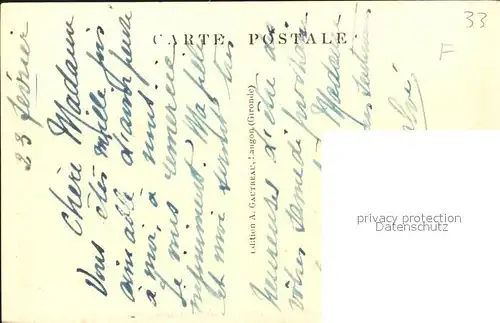 CARTE POSTALE
33
F
23 février
Chère Madame
Vous êtes mille fois
aimable d'avoir pensé
à moi, à nous!
Je vous remercie
infiniment. Ma fille
et moi serons très
Édition A. GAUTREAU, Langon (Gironde)
heureuses d'être des
vôtres samedi prochain
Madame
privacy protection
Delcampe.net